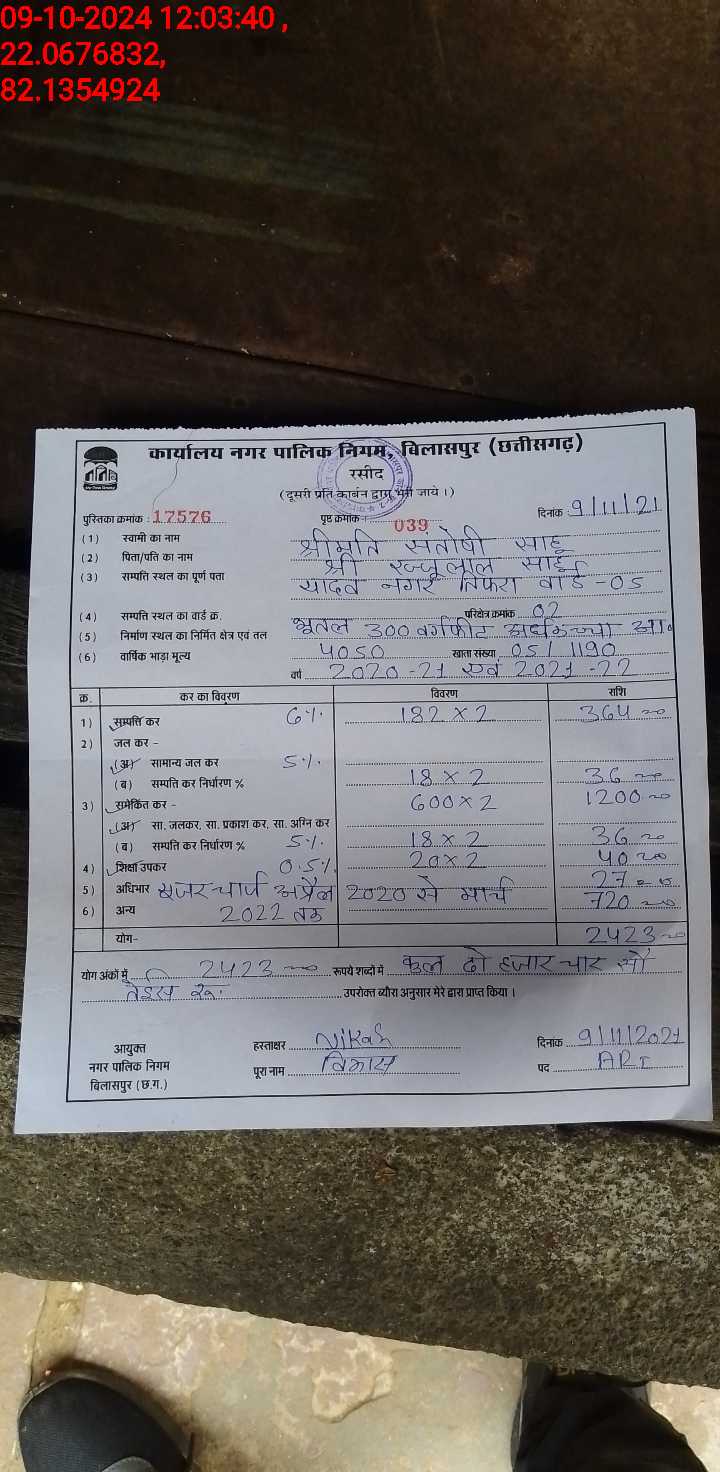 09-10-2024 12:03:40 ,
22.0676832,
82.1354924
कार्यालय नगर पालिक निगम, बिलासपुर (छत्तीसगढ़)
रसीद
(दूसरी प्रति कार्बन द्वारा भरी जाये।)
पुस्तिका क्रमांक : 17576 पृष्ठ क्रमांक 039 दिनांक 9/11/21
(1) स्वामी का नाम श्रीमति संतोषी साहू
(2) पिता/पति का नाम श्री रज्जूलाल साहू
(3) सम्पत्ति स्थल का पूर्ण पता यादव नगर तिफरा वार्ड -05
(4) सम्पत्ति स्थल का वार्ड क्र. परिक्षेत्र क्रमांक 02
(5) निर्माण स्थल का निर्मित क्षेत्र एवं तल भूतल 300 वर्गफीट अर्धकच्चा आ०
(6) वार्षिक भाड़ा मूल्य 4050 खाता संख्या 05/1190
वर्ष 2020-21 एवं 2021-22
क्र. कर का विवरण विवरण राशि
1) सम्पत्ति कर 6%. 182 x 2 364
2) जल कर -
(अ) सामान्य जल कर 5%.
(ब) सम्पति कर निर्धारण % 18 x 2 36
3) समेकित कर - 600 x 2 1200
(अ) सा. जलकर, सा. प्रकाश कर, सा. अग्नि कर
(ब) सम्पति कर निर्धारण % 5%. 18 x 2 36
4) शिक्षा उपकर 0.5%. 20x2 40
5) अधिभार यूजर चार्ज अप्रैल 2020 से मार्च 27
6) अन्य 2022 तक 720
योग- 2423
योग अंकों में 2423 रूपये शब्दों में कुल दो हजार चार सौ
तेइस रू. उपरोक्त ब्यौरा अनुसार मेरे द्वारा प्राप्त किया।
आयुक्त हस्ताक्षर Vikash दिनांक 9/11/2021
नगर पालिक निगम पूरा नाम विकास पद ARI
बिलासपुर (छ.ग.)